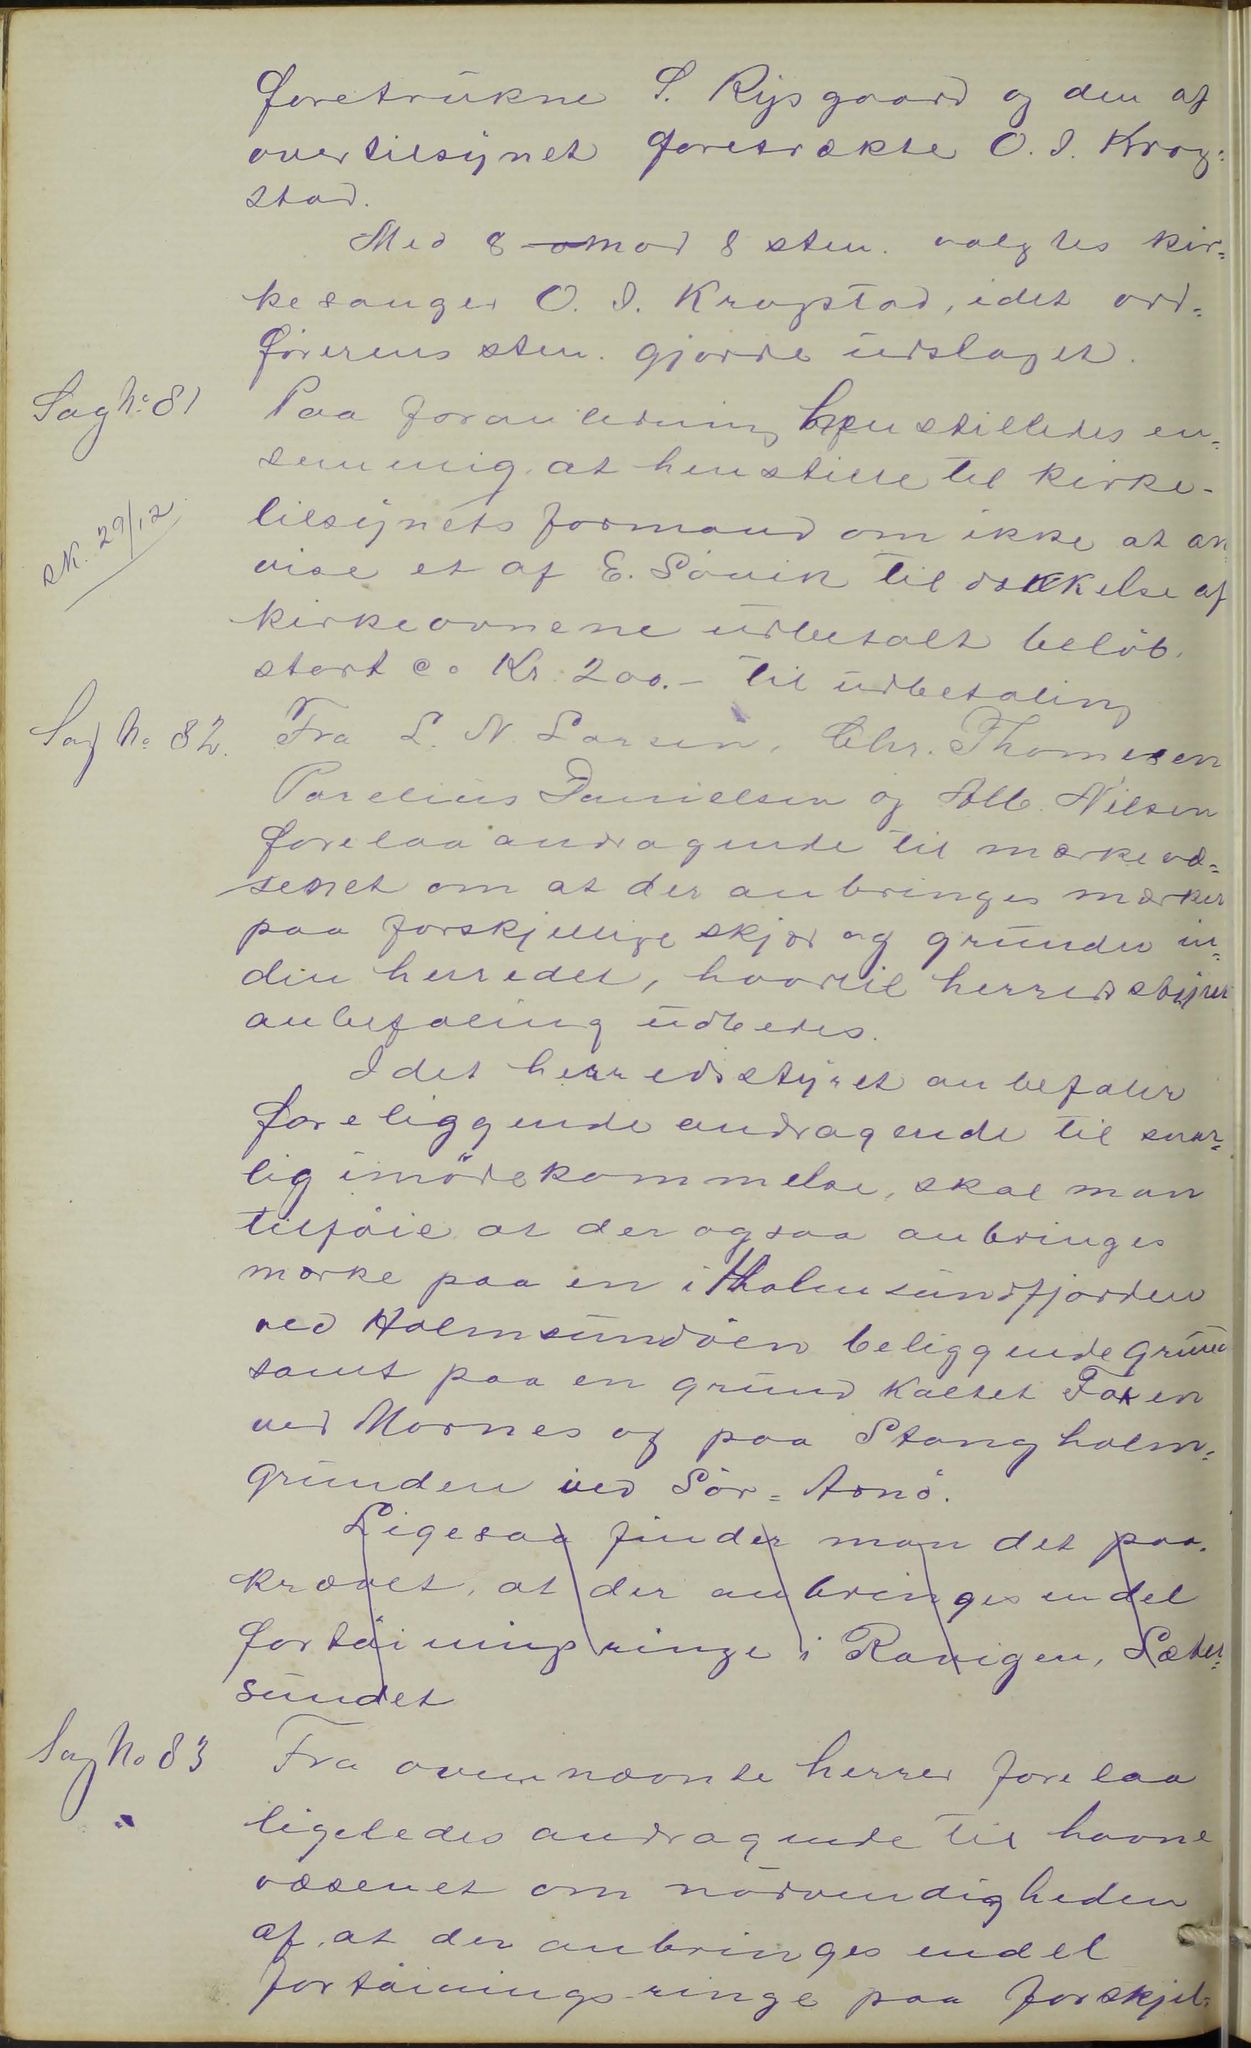 foretrukne S. Rysgaard og den af
overtilsynet foretrækte O. J. Krog=
stad.
Med 8 mod 8 stem. valgtes kir=
kesanger O. J. Krogstad, idet ord=
førerens stem. gjorde udslaget.
Sag No 81
Paa foranledning henstilledes en=
stemmig at henstille til kirke-
tilsynets formand om ikke at an
vise et af E. Søvik til dækkelse af
sk. 29/12
kirkeovnene udbetalt beløb
stort ca Kr. 200.- til udbetaling
Sag No 82.
Fra L. N. Larsen, Chr. Thomesen
Parelius Danielsen og Alb. Nilsen
forelaa andragende til mærkevæ=
senet om at der anbringes mærker
paa forskjellige skjær og grunder in=
den herredet, hvortil herredsstyrets
anbefaling udbedes.
Idet herredsstyret anbefaler
foreliggende andragende til snar=
lig imødekommelse, skal man
tilføie at der ogsaa anbringes
mærke paa en i Holmsundfjorden
ved Holmsundøen beliggende grund
samt paa en grund kaldet Taxen
ved Mornes og paa Stangholm=
grunden ved Sør=Arnø.
Ligesaa finder man det paa=
krævet, at der anbringes endel
fortøiningsringe i Ravigen, Sæter=
sundet
Sag No 83
Fra ovennævnte herrer forelaa
ligeledes andragende til havne
væsenet om nødvendigheden
af, at der anbringes endel
fortøiningsringe paa forskjel=